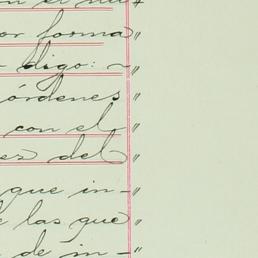 or forma "
- digo: ~ "
órdenes "
con el "
del "
que in- "
las que "
de in- "